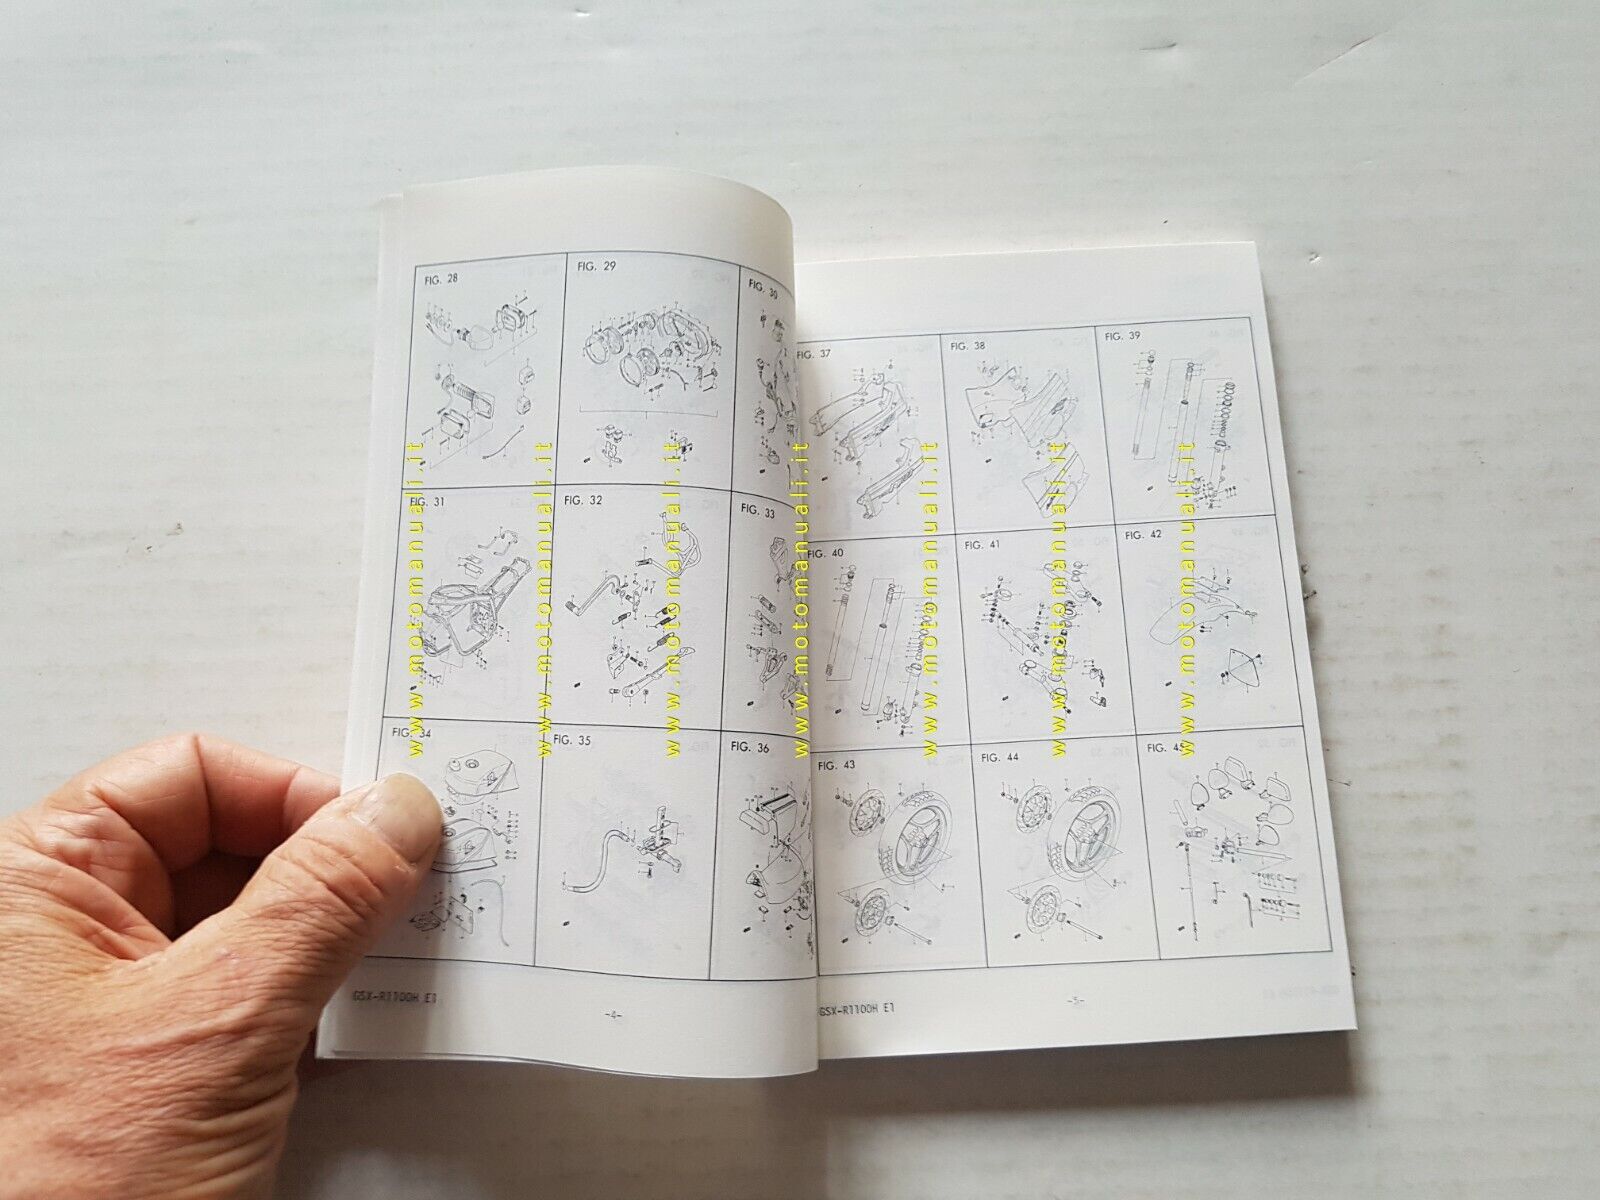 FIG. 28
FIG. 29
FIG. 30
FIG. 31
FIG. 32
FIG. 33
FIG. 34
FIG. 35
FIG. 36
GSX-R1100H E1
-4-
FIG. 37
FIG. 38
FIG. 39
FIG. 40
FIG. 41
FIG. 42
FIG. 43
FIG. 44
FIG. 45
GSX-R1100H E1
-5-
www.motomanuali.it
www.motomanuali.it
www.motomanuali.it
www.motomanuali.it
www.motomanuali.it
www.motomanuali.it
www.motomanuali.it